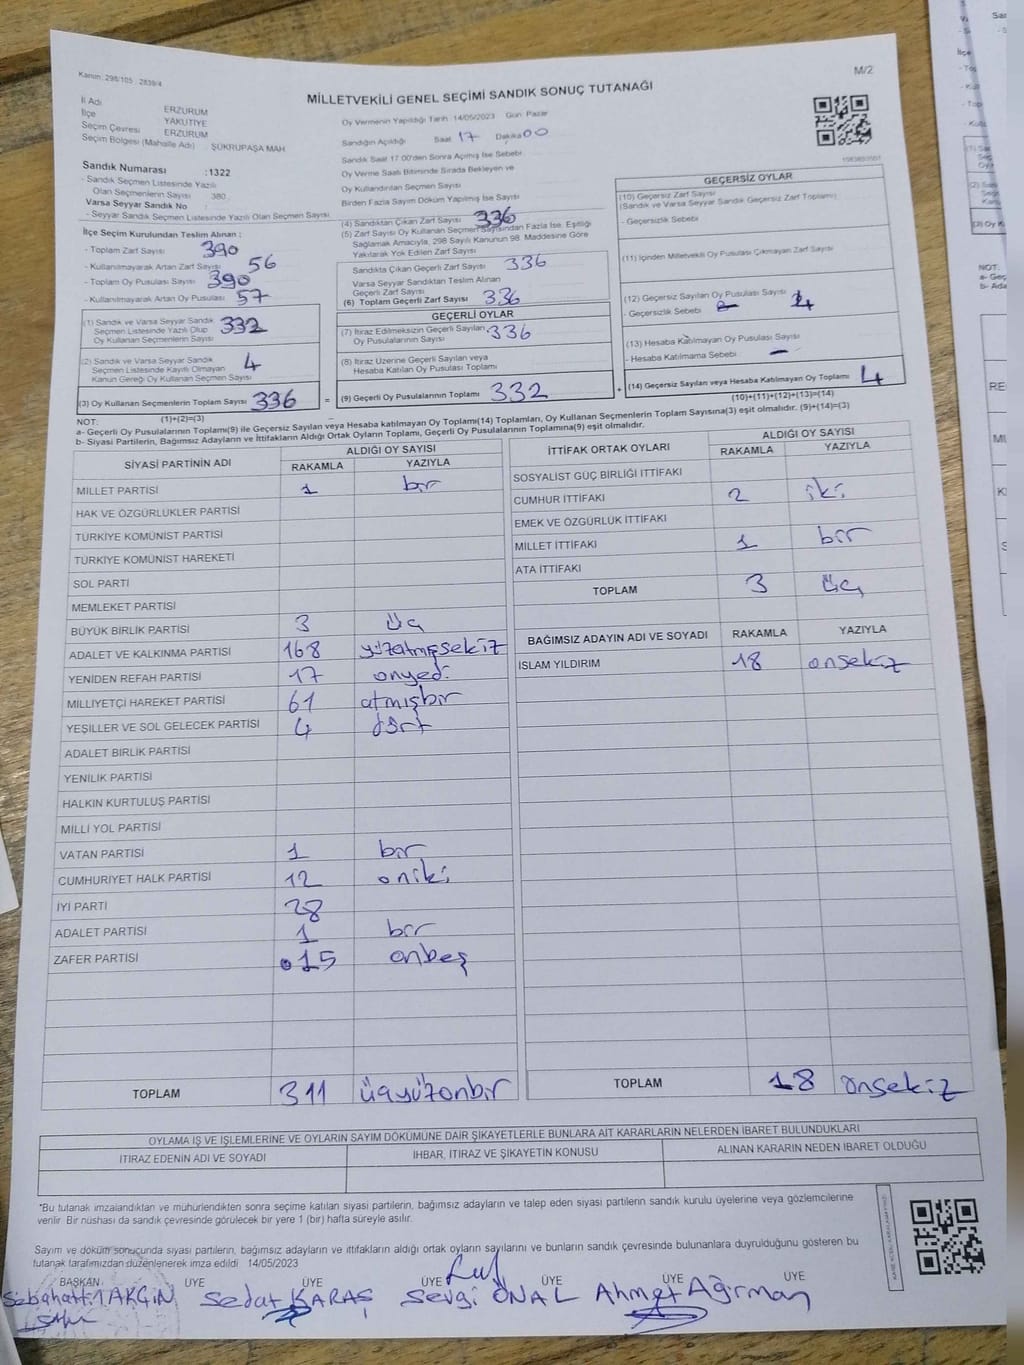 Kanun: 298/105 : 2839/4
M/2
MİLLETVEKİLİ GENEL SEÇİMİ SANDIK SONUÇ TUTANAĞI
İl Adı ERZURUM
İlçe YAKUTİYE
Seçim Çevresi ERZURUM
Seçim Bölgesi (Mahalle Adı) : ŞÜKRÜPAŞA MAH
Sandık Numarası :1322
- Sandık Seçmen Listesinde Yazılı
Olan Seçmenlerin Sayısı : 380
Varsa Seyyar Sandık No :
- Seyyar Sandık Seçmen Listesinde Yazılı Olan Seçmen Sayısı
İlçe Seçim Kurulundan Teslim Alınan ;
- Toplam Zarf Sayısı 390
- Kullanılmayarak Artan Zarf Sayısı 56
- Toplam Oy Pusulası Sayısı 390
- Kullanılmayarak Artan Oy Pusulası 57
(1) Sandık ve Varsa Seyyar Sandık
Seçmen Listesinde Yazılı Olup
Oy Kullanan Seçmenlerin Sayısı 332
(2) Sandık ve Varsa Seyyar Sandık
Seçmen Listesinde Kayıtlı Olmayan
Kanun Gereği Oy Kullanan Seçmen Sayısı 4
(3) Oy Kullanan Seçmenlerin Toplam Sayısı 336
(1)+(2)=(3)
Oy Vermenin Yapıldığı Tarih: 14/05/2023 Gün: Pazar
Sandığın Açıldığı Saat 17 Dakika 00
Sandık Saat 17.00'den Sonra Açılmış İse Sebebi
Oy Verme Saati Bitiminde Sırada Bekleyen ve
Oy Kullandırılan Seçmen Sayısı
Birden Fazla Sayım Döküm Yapılmış İse Sayısı
(4) Sandıktan Çıkan Zarf Sayısı 336
(5) Zarf Sayısı Oy Kullanan Seçmen Sayısından Fazla İse, Eşitliği
Sağlamak Amacıyla, 298 Sayılı Kanunun 98. Maddesine Göre
Yakılarak Yok Edilen Zarf Sayısı
Sandıkta Çıkan Geçerli Zarf Sayısı 336
Varsa Seyyar Sandıktan Teslim Alınan
Geçerli Zarf Sayısı
(6) Toplam Geçerli Zarf Sayısı 336
GEÇERLİ OYLAR
(7) İtiraz Edilmeksizin Geçerli Sayılan
Oy Pusulalarının Sayısı 336
(8) İtiraz Üzerine Geçerli Sayılan veya
Hesaba Katılan Oy Pusulası Toplamı
= (9) Geçerli Oy Pusulalarının Toplamı 332
GEÇERSİZ OYLAR
(10) Geçersiz Zarf Sayısı
(Sandık ve Varsa Seyyar Sandık Geçersiz Zarf Toplamı)
- Geçersizlik Sebebi
(11) İçinden Milletvekili Oy Pusulası Çıkmayan Zarf Sayısı
(12) Geçersiz Sayılan Oy Pusulası Sayısı 4
- Geçersizlik Sebebi
(13) Hesaba Katılmayan Oy Pusulası Sayısı
- Hesaba Katılmama Sebebi —
+ (14) Geçersiz Sayılan veya Hesaba Katılmayan Oy Toplamı 4
(10)+(11)+(12)+(13)=(14)
NOT:
a- Geçerli Oy Pusulalarının Toplamı(9) ile Geçersiz Sayılan veya Hesaba katılmayan Oy Toplamı(14) Toplamları, Oy Kullanan Seçmenlerin Toplam Sayısına(3) eşit olmalıdır. (9)+(14)=(3)
b- Siyasi Partilerin, Bağımsız Adayların ve İttifakların Aldığı Ortak Oyların Toplamı, Geçerli Oy Pusulalarının Toplamına(9) eşit olmalıdır.
SİYASİ PARTİNİN ADI ALDIĞI OY SAYISI
RAKAMLA YAZIYLA
MİLLET PARTİSİ 1 bir
HAK VE ÖZGÜRLÜKLER PARTİSİ
TÜRKİYE KOMÜNİST PARTİSİ
TÜRKİYE KOMÜNİST HAREKETİ
SOL PARTİ
MEMLEKET PARTİSİ
BÜYÜK BİRLİK PARTİSİ 3 üç
ADALET VE KALKINMA PARTİSİ 168 yüzatmışsekiz
YENİDEN REFAH PARTİSİ 17 onyedi
MİLLİYETÇİ HAREKET PARTİSİ 61 atmışbir
YEŞİLLER VE SOL GELECEK PARTİSİ 4 dört
ADALET BİRLİK PARTİSİ
YENİLİK PARTİSİ
HALKIN KURTULUŞ PARTİSİ
MİLLİ YOL PARTİSİ
VATAN PARTİSİ 1 bir
CUMHURİYET HALK PARTİSİ 12 oniki
İYİ PARTİ 28
ADALET PARTİSİ 1 bir
ZAFER PARTİSİ 15 onbeş
TOPLAM 311 üçyüzonbir
İTTİFAK ORTAK OYLARI ALDIĞI OY SAYISI
RAKAMLA YAZIYLA
SOSYALİST GÜÇ BİRLİĞİ İTTİFAKI
CUMHUR İTTİFAKI 2 iki
EMEK VE ÖZGÜRLÜK İTTİFAKI
MİLLET İTTİFAKI 1 bir
ATA İTTİFAKI
TOPLAM 3 üç
BAĞIMSIZ ADAYIN ADI VE SOYADI RAKAMLA YAZIYLA
İSLAM YILDIRIM 18 onsekiz
TOPLAM 18 onsekiz
OYLAMA İŞ VE İŞLEMLERİNE VE OYLARIN SAYIM DÖKÜMÜNE DAİR ŞİKAYETLERLE BUNLARA AİT KARARLARIN NELERDEN İBARET BULUNDUKLARI
İTİRAZ EDENİN ADI VE SOYADI İHBAR, İTİRAZ VE ŞİKAYETİN KONUSU ALINAN KARARIN NEDEN İBARET OLDUĞU
"Bu tutanak imzalandıktan ve mühürlendikten sonra seçime katılan siyasi partilerin, bağımsız adayların ve talep eden siyasi partilerin sandık kurulu üyelerine veya gözlemcilerine
verilir. Bir nüshası da sandık çevresinde görülecek bir yere 1 (bir) hafta süreyle asılır.
Sayım ve döküm sonucunda siyasi partilerin, bağımsız adayların ve ittifakların aldığı ortak oyların sayılarını ve bunların sandık çevresinde bulunanlara duyrulduğunu gösteren bu
tutanak tarafımızdan düzenlenerek imza edildi 14/05/2023
BAŞKAN ÜYE ÜYE ÜYE ÜYE ÜYE ÜYE
Sebahattin AKÇİN Sedat KARAŞ Sevgi ÖNAL Ahmet Ağırman